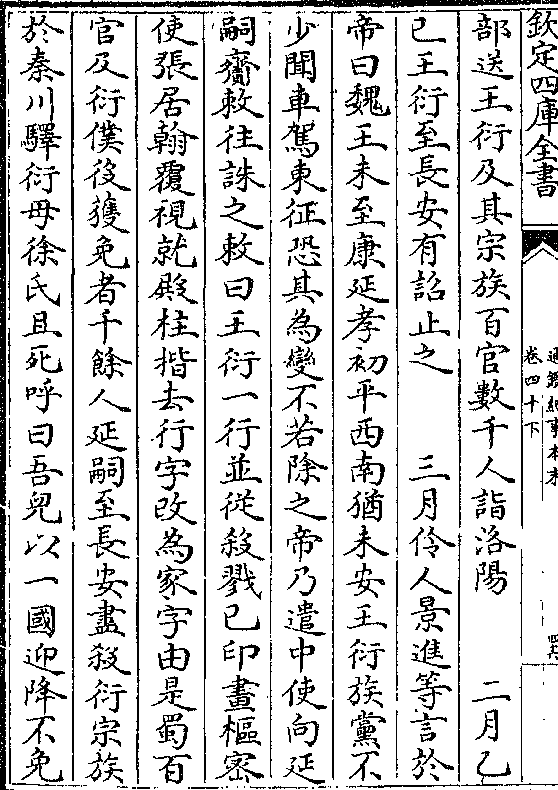 欽定四庫全書
通鑑紀事本末
卷四十下
部送王衍及其宗族百官數千人詣洛陽　二月乙
巳王衍至長安有詔止之　三月伶人景進等言於
帝曰魏王未至康延孝初平西南猶未安王衍族黨不
少聞車駕東征恐其為變不若除之帝乃遣中使向延
嗣齎敕往誅之敕曰王衍一行並從殺戮已印畫樞密
使張居翰覆視就殿柱揩去行字改為家字由是蜀百
官及衍僕役獲免者千餘人延嗣至長安盡殺衍宗族
於秦川驛衍母徐氏且死呼曰吾兒以一國迎降不免